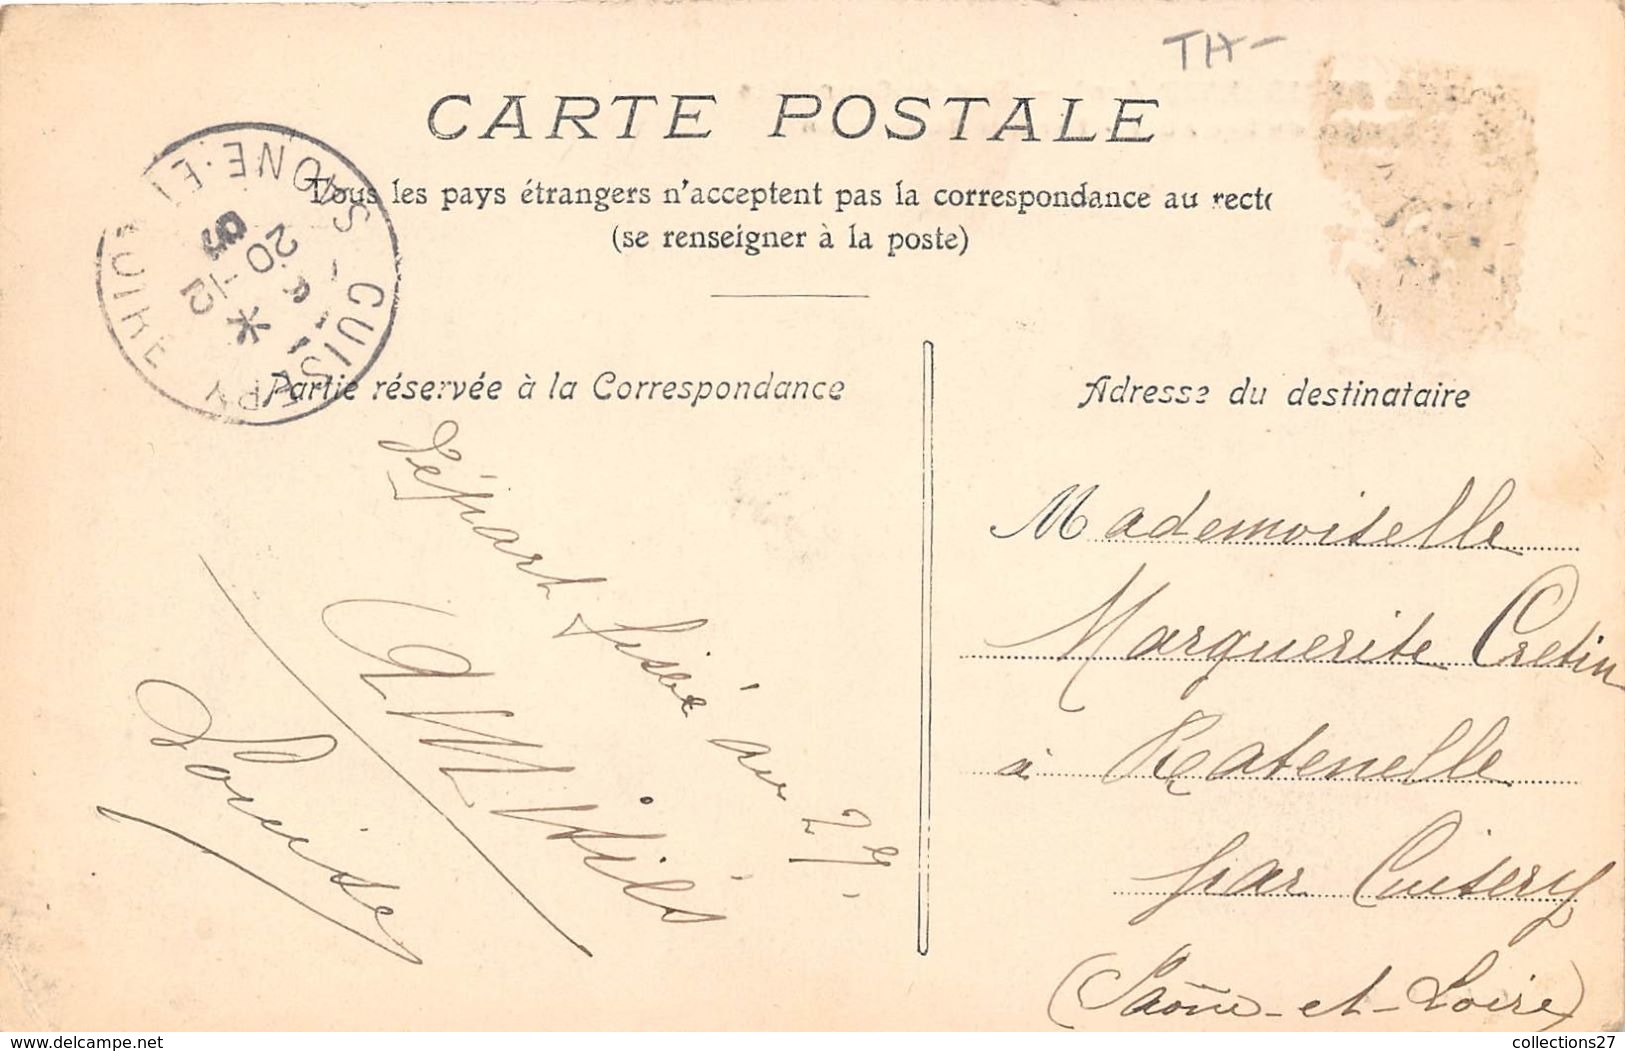 TH-
CARTE POSTALE
Tous les pays étrangers n'acceptent pas la correspondance au recto
(se renseigner à la poste)
CUISERY
SAONE-ET-LOIRE
Partie réservée à la Correspondance
Adresse du destinataire
Départ fixé au 29.
Amitiés
Louise
Mademoiselle
Marguerite Cretin
à Ratenelle
par Cuisery
(Saône-et-Loire)
collections27
www.delcampe.net